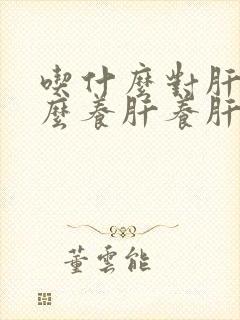 喫什麼對肝
麼養肝養肝
董雲能